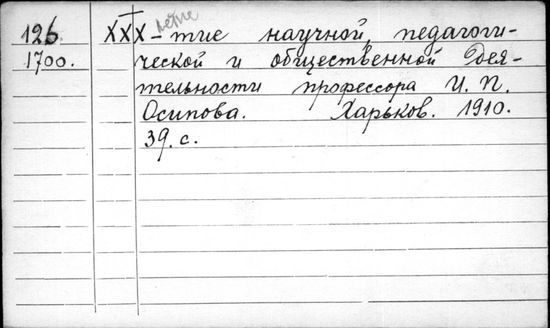 летие
126 XXX-тие научной, педагоги-
1700. ческой и общественной дея-
тельности профессора И. П.
Осипова. Харьков. 1910.
39. с.